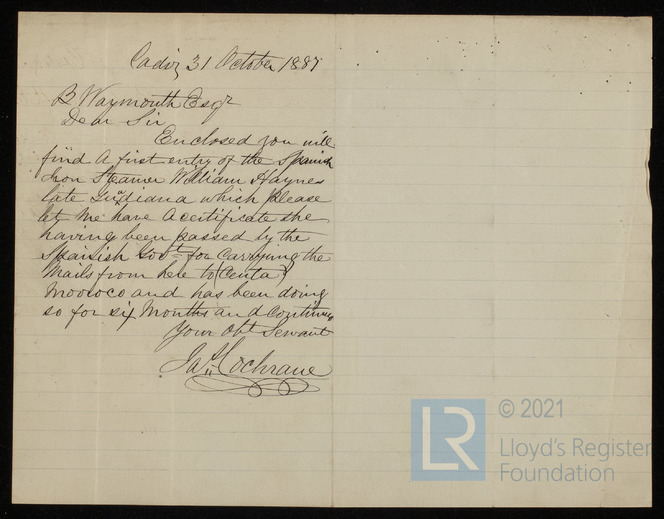 Cadiz 31 October 1887
B Waymouth Esqr
Dear Sir
Enclosed you will
find A first entry of the Spanish
Iron Steamer William Haynes
late Gudiana which Please
let Me have A certificate she
having been passed by the
Spainish Govt for Carrying the
Mails from here to (Ceuta)
Morroco and has been doing
so for six Months and Continues
Your Obt Servant
Jas Cochrane
LR
© 2021
Lloyd's Register
Foundation